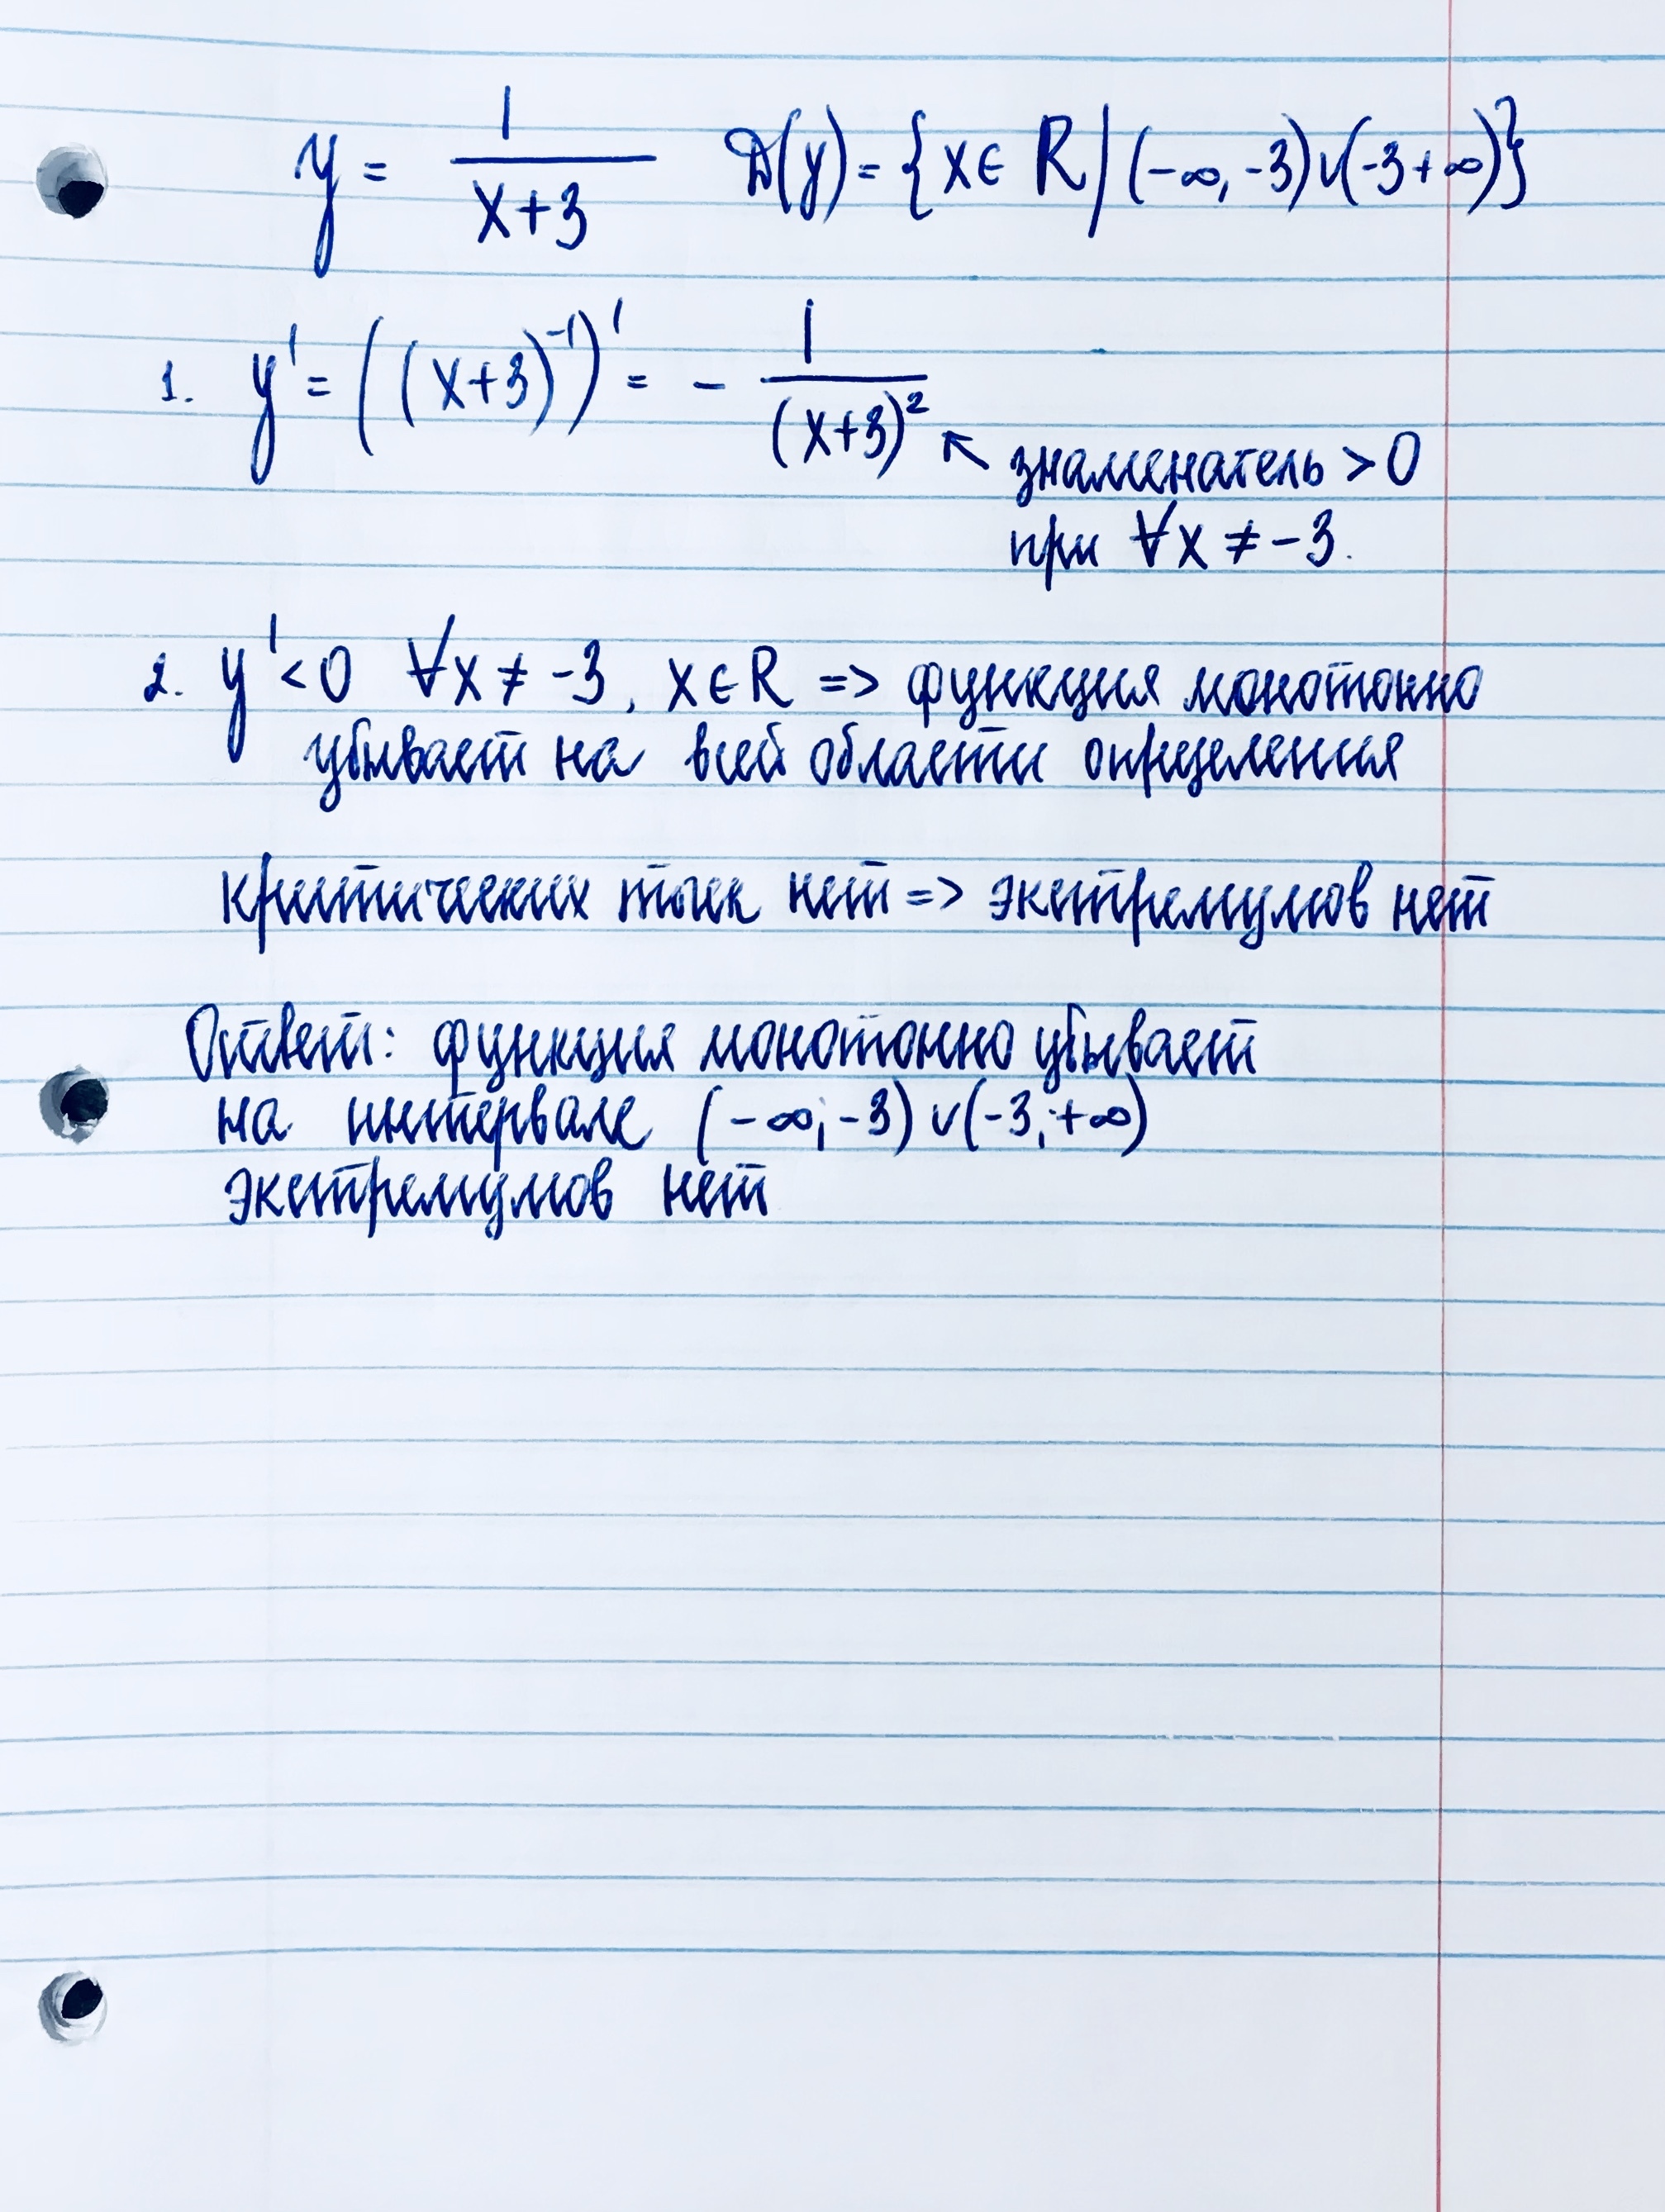 y = 1/(x+3) D(y) = {x ∈ R | (-∞, -3) ∪ (-3 +∞)}
1. y' = ((x+3)^-1)' = - 1/(x+3)^2
↖ знаменатель > 0
при ∀x ≠ -3.
2. y' < 0 ∀x ≠ -3, x ∈ R => функция монотонно
убывает на всей области определения
критических точек нет => экстремумов нет
Ответ: функция монотонно убывает
на интервале (-∞; -3) ∪ (-3; +∞)
экстремумов нет